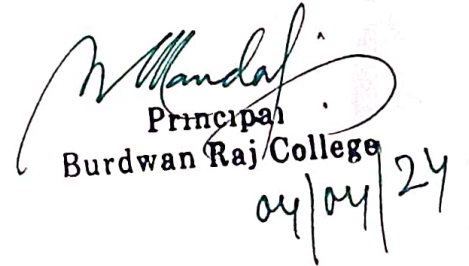 N Mandal
Principal
Burdwan Raj College
04/04/24